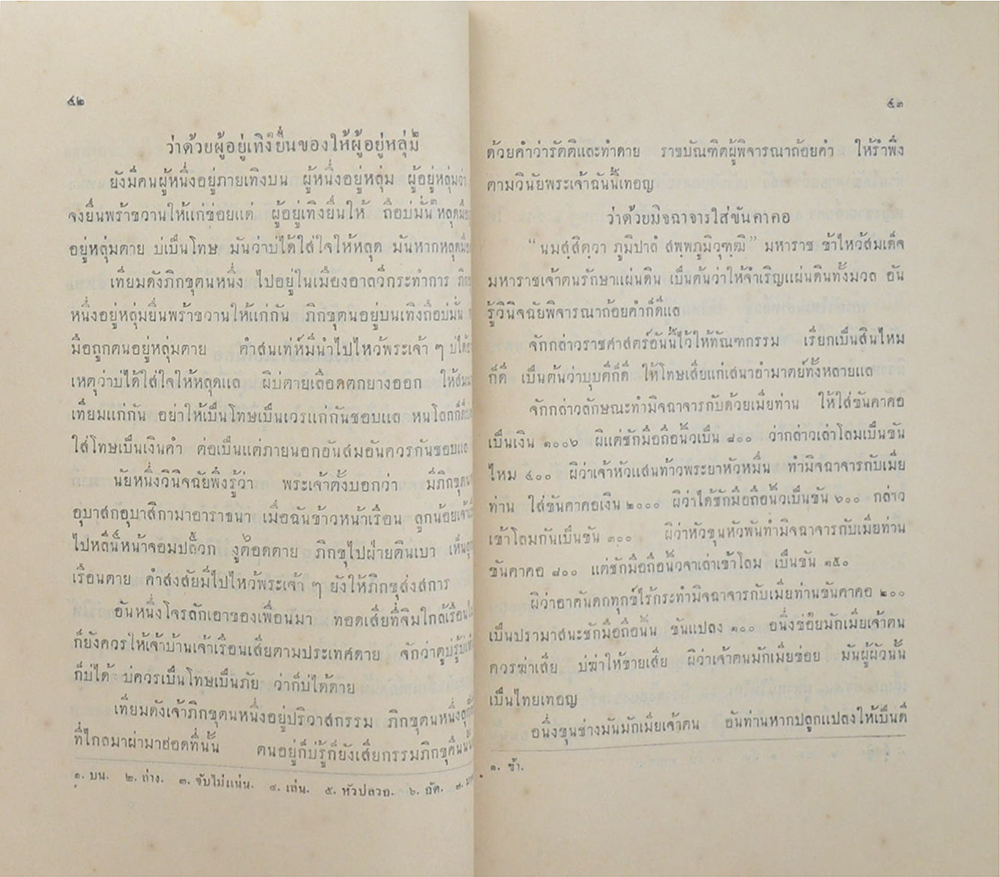 ๕๒
ว่าด้วยผู้อยู่เทิงยื่นของให้ผู้อยู่หลุ่ม
ยังมีคนผู้หนึ่งอยู่ภายเทิงบน ผู้หนึ่งอยู่หลุ่ม ผู้อยู่หลุ่มว่า
จงยื่นพร้าขวานให้แก่ข่อยแด่ ผู้อยู่เทิงยื่นให้ ถือบ่มั่น หลุดมือ
อยู่หลุ่มตาย บ่เป็นโทษ มันว่าบ่ได้ใส่ใจให้หลุด มันหากหลุดมือ
เที่ยมดังภิกขุตนหนึ่ง ไปอยู่ในเมืองอาลวีกระทำการ
หนึ่งอยู่หลุ่มยื่นพร้าขวานให้แก่กัน ภิกขุตนอยู่บนเทิงถือบ่มั่น
มือถูกตนอยู่หลุ่มตาย คำสนเท่ห์มีนำไปไหว้พระเจ้า ๆ บ่ได้
เหตุว่าบ่ได้ใส่ใจให้หลุดแล ผิบ่ตายเลือดตกยางออก ให้สม
เที่ยมแก่กัน อย่าให้เป็นโทษเป็นเวรแก่กันชอบแล หนโลกก็ดี
ใส่โทษเป็นเงินคำ ต่อเป็นแต่ภายนอกอันสมอันควรกันชอบแล
นัยหนึ่งวินิจฉัยพึ่งรู้ว่า พระเจ้าตั้งบอกว่า มีภิกขุตน
อุบาสกอุบาสิกามาอาราธนา เมื่อฉันข้าวหน้าเรือน ลูกน้อยเจ้า
ไปหลิ้นหน้าจอมปลวก งูตอดตาย ภิกขุไปฝ่ายตีนเบา เห็น
เรือนตาย คำสงสัยมีไปไหว้พระเจ้า ๆ ยังให้ภิกขุส่งสการ
อันหนึ่งโจรลักเอาของเพื่อนมา ทอดเสียที่จิมใกล้เรือน
ก็ยังควรให้เจ้าบ้านเจ้าเรือนเสียตามประเทศตาย จักว่าตูบ่รู้
ก็บ่ได้ บ่ควรเป็นโทษเป็นภัย ว่าก็บ่ได้ตาย
เที่ยมดังเจ้าภิกขุตนหนึ่งอยู่ปริวาสกรรม ภิกขุตนหนึ่ง
ที่ไกลมาผ่ามาฮอดที่นั้น ตนอยู่ก็บ่รู้ก็ยังเสียกรรมภิกขุตน
๑. บน. ๒. ล่าง. ๓. จับไม่แน่น. ๔. เล่น. ๕. หัวปลวก. ๖. กัด. ๗.
๕๓
ด้วยคำว่ารัตติและทำดาย ราชบัณฑิตผู้พิจารณาถ้อยคำ ให้รำพึง
ตามวินัยพระเจ้าฉันนี้เทอญ
ว่าด้วยมิจฉาจารใส่ขันคาคอ
“นมสฺสิตฺวา ภูมิปาลํ สพฺพภูมิวุฑฺฒิ” มหาราช ข้าไหว้สมเด็จ
มหาราชเจ้าตนรักษาแผ่นดิน เป็นต้นว่าให้จำเริญแผ่นดินทั้งมวล อัน
รู้วินิจฉัยพิจารณาถ้อยคำก็ดีแล
จักกล่าวราชศาสตร์อันนี้ไว้ให้ทัณฑกรรม เรียกเป็นสินไหม
ก็ดี เป็นต้นว่าบุบตีก็ดี ให้โทษเสียแก่เสนาอำามาตย์ทั้งหลายแล
จักกล่าวลักษณะทำมิจฉาจารกับด้วยเมียท่าน ให้ใส่ขันคาคอ
เป็นเงิน ๑๐๐๖ ผิแต่ชักมือถือนิ้วเป็น ๘๐๐ ว่ากล่าวเล่าโลมเป็นขัน
ไหม ๔๐๐ ผิว่าเจ้าหัวแสนท้าวพระยาหัวหมื่น ทำมิจฉาจารกับเมีย
ท่าน ใส่ขันคาคอเงิน ๒๐๐๐ ผิว่าได้ชักมือถือนิ้วเป็นขัน ๖๐๐ กล่าว
เข้าโลมกันเป็นขัน ๓๐๐ ผิว่าหัวขุนหัวพันทำมิจฉาจารกับเมียท่าน
ขันคาคอ ๘๐๐ แต่ชักมือถือนิ้วจาเล่าเข้าโลม เป็นขัน ๑๕๐
ผิว่าอาคันตุกทุกข์ไร้กระทำมิจฉาจารกับเมียท่านขันคาคอ ๒๐๐
เป็นปรามาสนะชักมือถือนั้น ขันแปลง ๑๐๐ อนึ่งข่อยมักเมียเจ้าตน
ควรฆ่าเสีย บ่ฆ่าให้ขายเสีย ผิว่าเจ้าตนมักเมียข่อย มันผู้ผัวนั้น
เป็นไทยเทอญ
อนึ่งขุนช่างมันมักเมียเจ้าตน อันท่านหากปลูกแปลงให้เป็นดี
๑. ข้า.